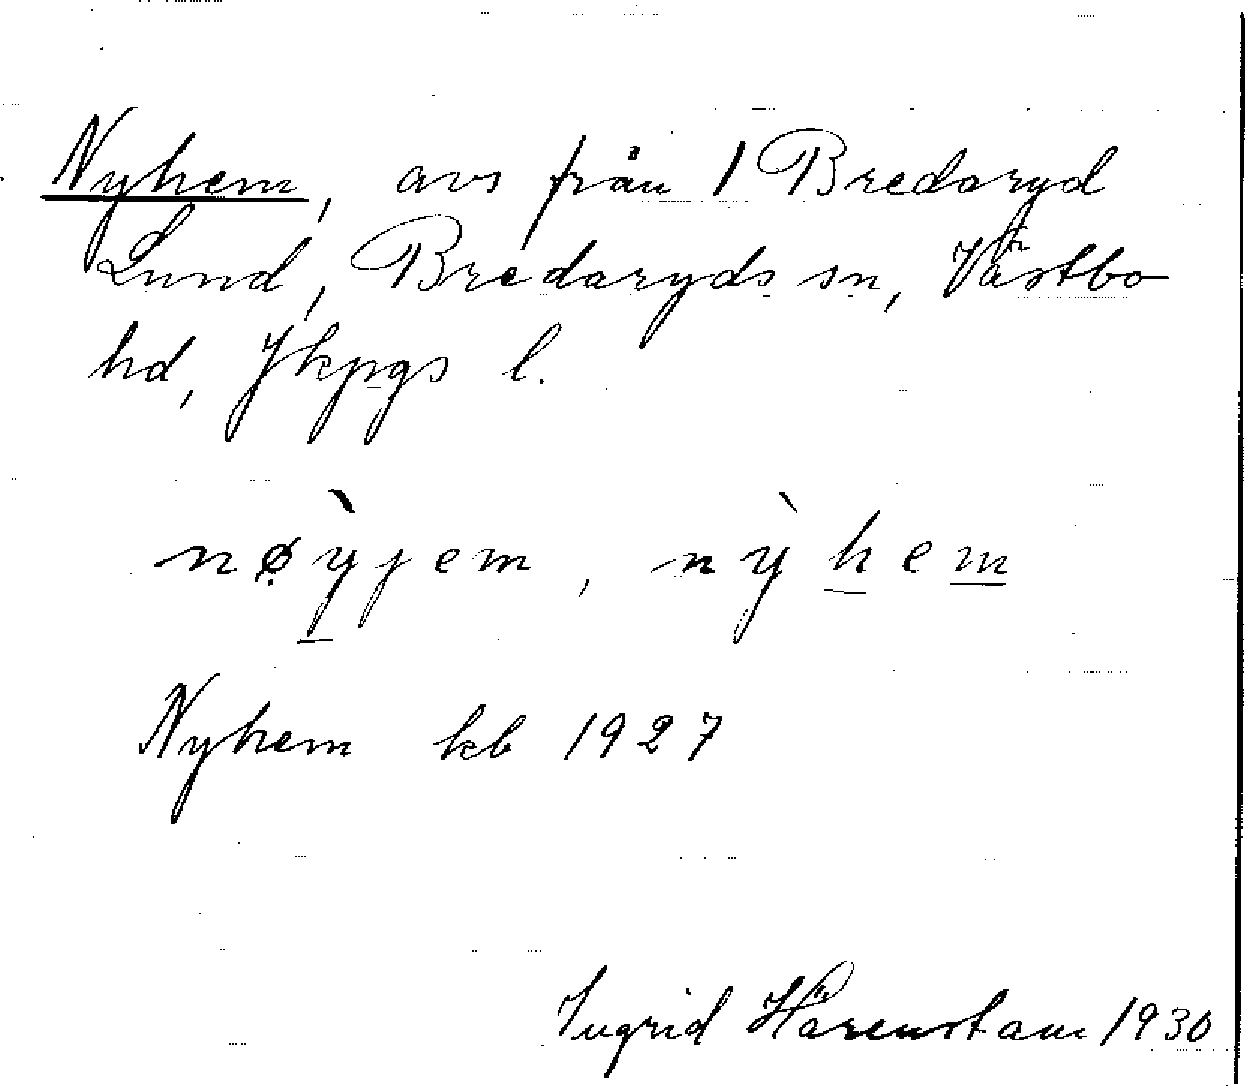 Nyhem, avs från 1 Bredaryd
Lund, Bredaryds sn, Västbo
hd, Jkpgs l.
nø̀yjem, nỳhem
Nyhem kb 1927
Ingrid Härenstam 1930